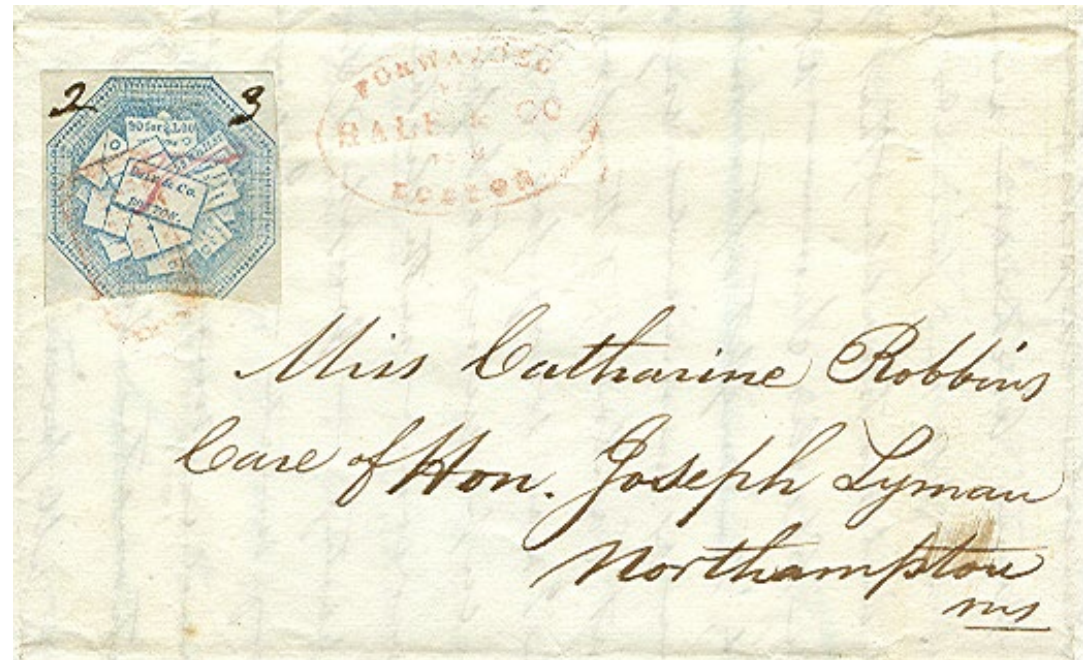 2 3
20 for $1.00
Hale & Co.
BOSTON.
FORWARDED
HALE & CO
BOSTON
Miss Catharine Robbins
Care of Hon. Joseph Lyman
Northampton
Ms